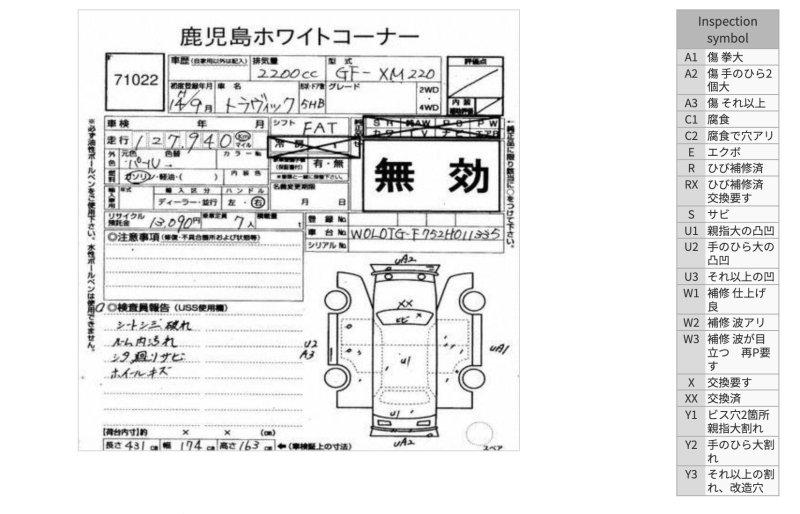 鹿児島ホワイトコーナー
71022
車歴(自家用以外は記入) 排気量 型式 評価点
2200cc GF-XM220
初度登録年月 車名 形状・ドア数 グレード 2WD
14/9月 トラヴィック 5HB 4WD
内装
車検 年 月 シフト FAT
走行 127,940 Km マイル
冷房
外色 元色 色替 カラーNo.
パール→ 有・無
燃料 ガソリン・軽油・( ) 内装色
輸入車用 年式 輸入区分 ハンドル 名義変更期限
ディーラー・並行 左・右 月 日
無効
リサイクル預託金 13,090円 乗車定員 7人 積載量 t
登録No.
車台No. W0L0TG-F752H011335
シリアルNo.
◎注意事項(修復・不具合箇所および状態等)
◎検査員報告(USS使用欄)
シートシミ破れ
ルーム内汚れ
シタ廻リサビ
ホイールキズ
U2
A3
uA2
XX
u1
uA1
u1
uA2
スペア
[荷台内寸]約 × × (cm)
長さ431cm 幅174cm 高さ163cm ←(車検証上の寸法)
※必ず油性ボールペンをご使用下さい。水性ボールペンは使用できません。
Inspection symbol
A1 傷 拳大
A2 傷 手のひら2個大
A3 傷 それ以上
C1 腐食
C2 腐食で穴アリ
E エクボ
R ひび補修済
RX ひび補修済 交換要す
S サビ
U1 親指大の凸凹
U2 手のひら大の凸凹
U3 それ以上の凹
W1 補修 仕上げ良
W2 補修 波アリ
W3 補修 波が目立つ 再P要す
X 交換要す
XX 交換済
Y1 ビス穴2箇所 親指大割れ
Y2 手のひら大割れ
Y3 それ以上の割れ、改造穴